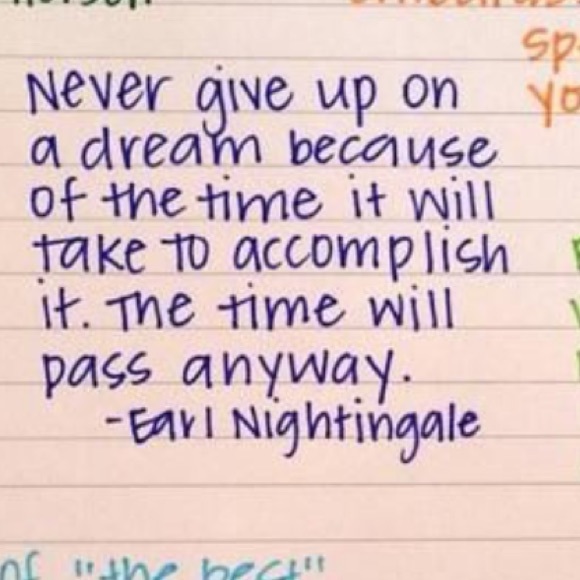 Never give up on
a dream because
of the time it will
take to accomplish
it. The time will
pass anyway.
-Earl Nightingale
of "the best"